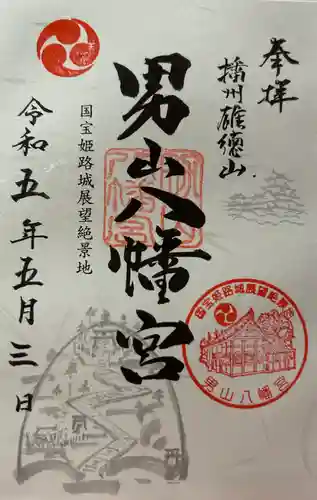 奉拝
播州雄徳山
男山八幡宮
国宝姫路城展望絶景地
令和五年五月三日
国宝姫路城展望絶景
男山八幡宮